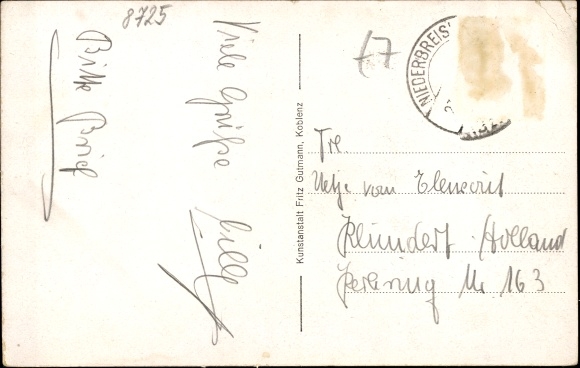 8725
Bitte Brief
Viele Grüße
Lilli
Kunstanstalt Fritz Gutmann, Koblenz
17
NIEDERBREIS
Tre
van
Klundert Holland
163